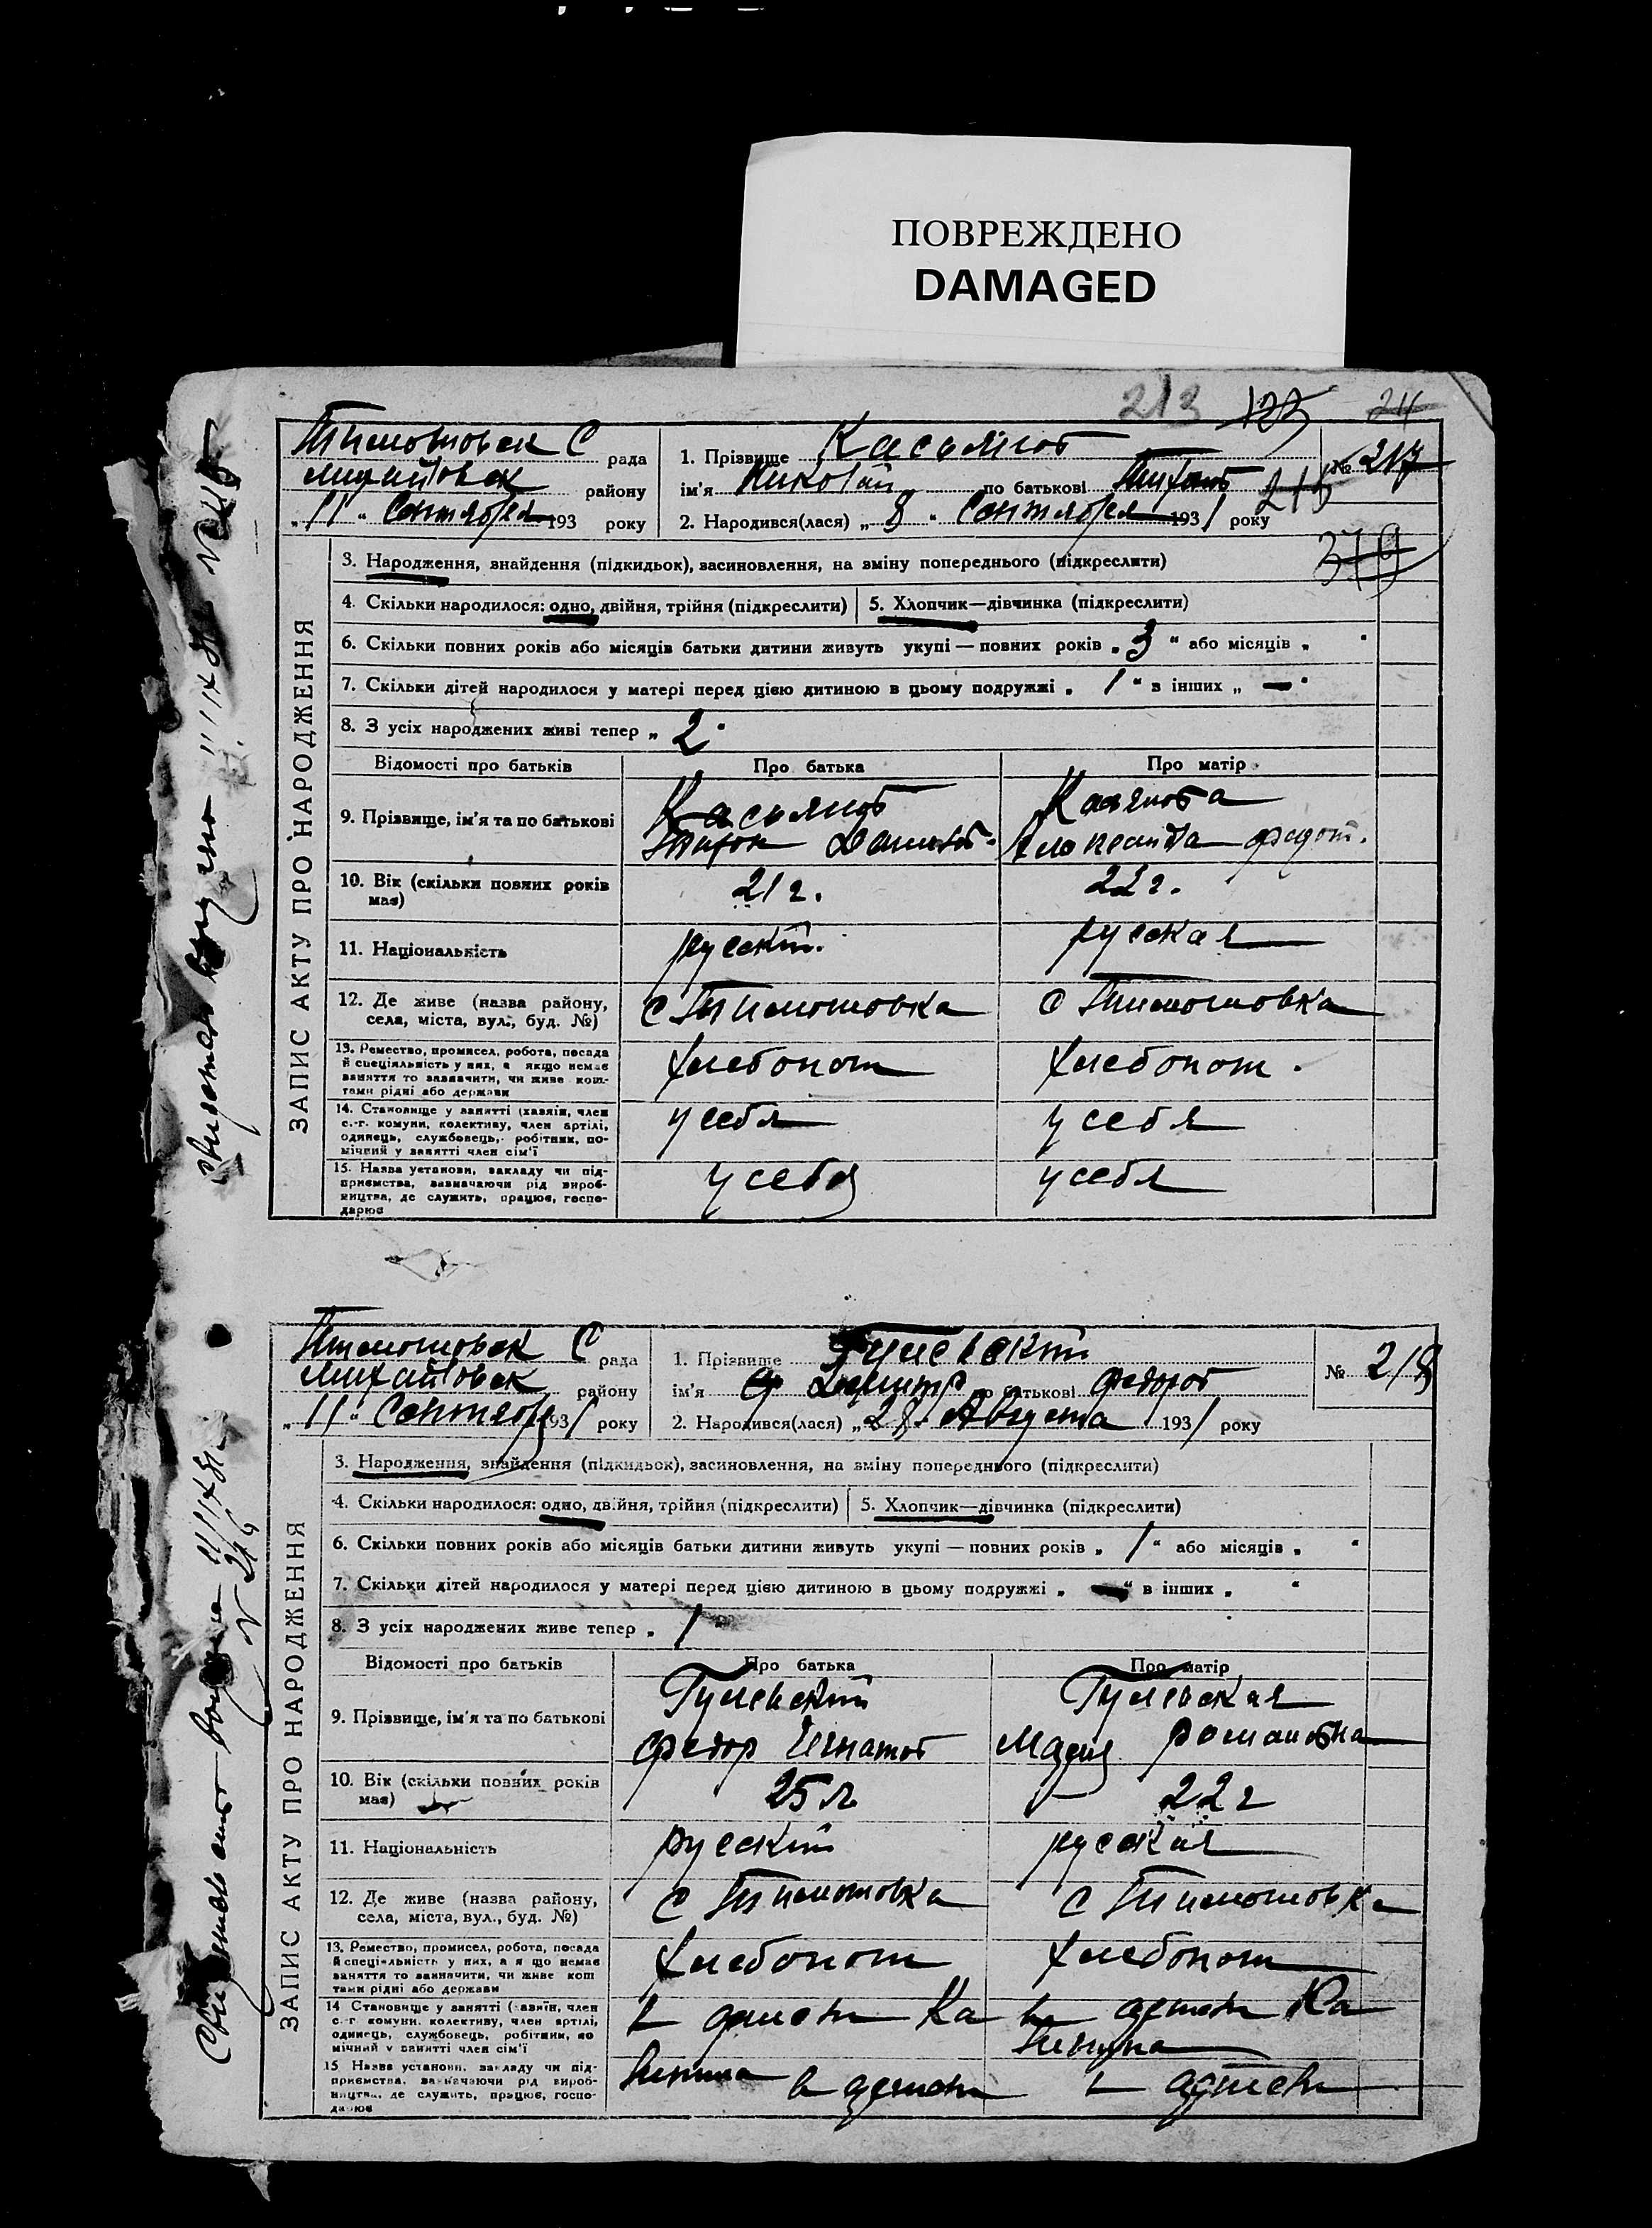 ПОВРЕЖДЕНО
DAMAGED
213 123 211
Тимошовск С рада
михайловск району
„ 11 " Сентября 193 року
1. Прізвище Касьянов
ім'я Николай по батькові Тихонов
2. Народився(лася) „ 8 " Сентября 1931 року
№ 217
215
379
ЗАПИС АКТУ ПРО НАРОДЖЕННЯ
3. Народження, знайдення (підкидьок), засиновлення, на зміну попереднього (підкреслити)
4. Скільки народилося: одно, двійня, трійня (підкреслити) 5. Хлопчик—дівчинка (підкреслити)
6. Скільки повних років або місяців батьки дитини живуть укупі — повних років „ 3 " або місяців „ "
7. Скільки дітей народилося у матері перед цією дитиною в цьому подружжі „ 1 " в інших „ — "
8. З усіх народжених живі тепер „ 2 "
Відомості про батьків Про батька Про матір
9. Прізвище, ім'я та по батькові
Касьянов
Тихон
Касянова
федот.
10. Вік (скільки повних років має) 21 г. 22 г.
11. Національність русский. русская
12. Де живе (назва району, села, міста, вул., буд. №) С Тимошовка С Тимошовка
13. Ремество, промисел, робота, посада
й спеціяльність у них, а якщо немає
заняття то зазначити, чи живе кош-
тами рідні або держави
хлебопаш хлебопаш.
14. Становище у занятті (хазяїн, член
с.-г. комуни, колективу, член артілі,
одинець, службовець, робітник, по-
мічний у занятті член сім'ї
у себя у себя
15. Назва установи, закладу чи під-
приємства, зазначаючи рід вироб-
ництва, де служить, працює, госпо-
дарює
у себя у себя
Тимошовск С рада
михайловск району
„ 11 " Сентябр 1931 року
1. Прізвище Гулевский
ім'я Димитр по батькові федоров
2. Народився(лася) „ 28 " Августа 1931 року
№ 218
ЗАПИС АКТУ ПРО НАРОДЖЕННЯ
3. Народження, знайдення (підкидьок), засиновлення, на зміну попереднього (підкреслити)
4. Скільки народилося: одно, двійня, трійня (підкреслити) 5. Хлопчик—дівчинка (підкреслити)
6. Скільки повних років або місяців батьки дитини живуть укупі — повних років „ 1 " або місяців „ "
7. Скільки дітей народилося у матері перед цією дитиною в цьому подружжі „ — " в інших „ "
8. З усіх народжених живе тепер „ 1
Відомості про батьків Про батька Про матір
9. Прізвище, ім'я та по батькові
Гулевский
федор Игнатов
Гулевская
Мария Романовна
10. Вік (скільки повних років має) 25 л 22 г
11. Національність русский русская
12. Де живе (назва району, села, міста, вул., буд. №) С Тимошовка С Тимошовка
13. Ремество, промисел, робота, посада
й спеціяльність у них, а я що немає
заняття то зазначити, чи живе кош
тами рідні або держави
хлебопаш хлебопаш
14 Становище у занятті (хазяїн, член
с.-г комуни, колективу, член артілі,
одинець, службовець, робітник, по
мічний у занятті член сім'ї
15 Назва установи, закладу чи під-
приємства, зазначаючи рід вироб-
ництва, де служить, працює, госпо-
дарює